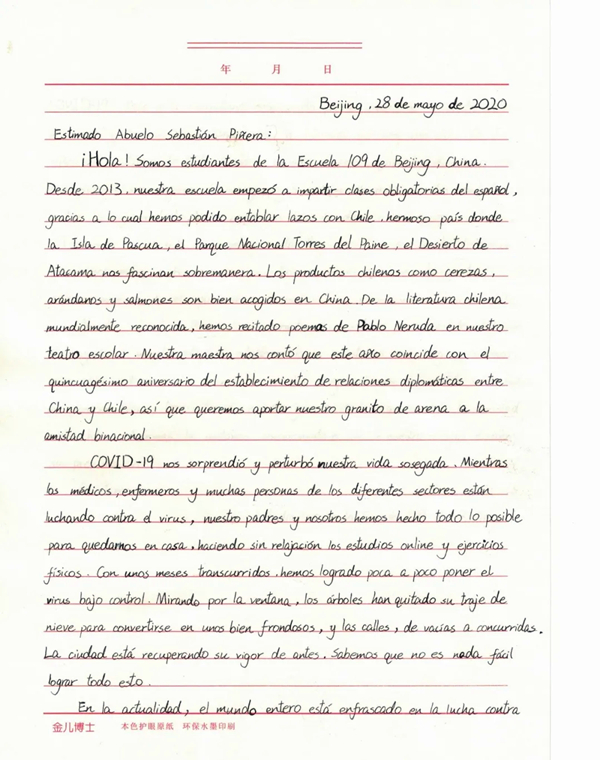 年 月 日
Beijing, 28 de mayo de 2020
Estimado Abuelo Sebastián Piñera:
¡Hola! Somos estudiantes de la Escuela 109 de Beijing, China.
Desde 2013, nuestra escuela empezó a impartir clases obligatorias del español,
gracias a lo cual hemos podido entablar lazos con Chile, hermoso país donde
la Isla de Pascua, el Parque Nacional Torres del Paine, el Desierto de
Atacama nos fascinan sobremanera. Los productos chilenos como cerezas,
arándanos y salmones son bien acogidos en China. De la literatura chilena
mundialmente reconocida, hemos recitado poemas de Pablo Neruda en nuestro
teatro escolar. Nuestra maestra nos contó que este año coincide con el
quincuagésimo aniversario del establecimiento de relaciones diplomáticas entre
China y Chile, así que queremos aportar nuestro granito de arena a la
amistad binacional.
COVID-19 nos sorprendió y perturbó nuestra vida sosegada. Mientras
los médicos, enfermeros y muchas personas de los diferentes sectores están
luchando contra el virus, nuestro padres y nosotros hemos hecho todo lo posible
para quedarnos en casa, haciendo sin relajación los estudios online y ejercicios
físicos. Con unos meses transcurridos, hemos logrado poca a poco poner el
virus bajo control. Mirando por la ventana, los árboles han quitado su traje de
nieve para convertirse en unos bien frondosos, y las calles, de vacías a concurridas.
La ciudad está recuperando su vigor de antes. Sabemos que no es nada fácil
lograr todo esto.
En la actualidad, el mundo entero está enfrascado en la lucha contra
金儿博士 本色护眼原纸 环保水墨印刷